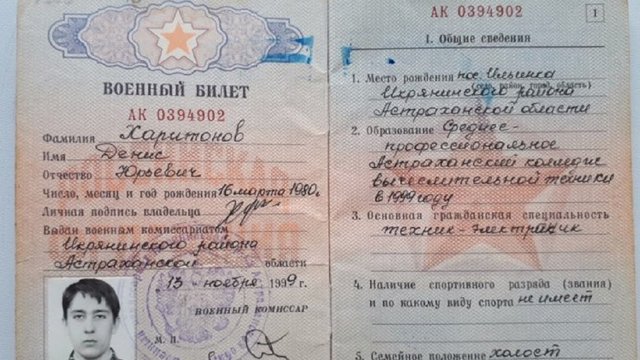 ВОЕННЫЙ БИЛЕТ
АК 0394902
Фамилия Харитонов
Имя Денис
Отчество Юрьевич
Число, месяц и год рождения 16 марта 1980г
Личная подпись владельца
Выдан военным комиссариатом
Икрянинского района
Астраханской области
13 ноября 1999 г.
ВОЕННЫЙ КОМИССАР
М. П.
АК 0394902
1
I. Общие сведения
1. Место рождения пос. Ильинка
Икрянинского района
Астраханской области
2. Образование Средне-
профессиональное
Астраханский колледж
вычеслительной техники
в 1999 году
3. Основная гражданская специальность
техник-электрик
4. Наличие спортивного разряда (звания)
и по какому виду спорта не имеет
5. Семейное положение холост